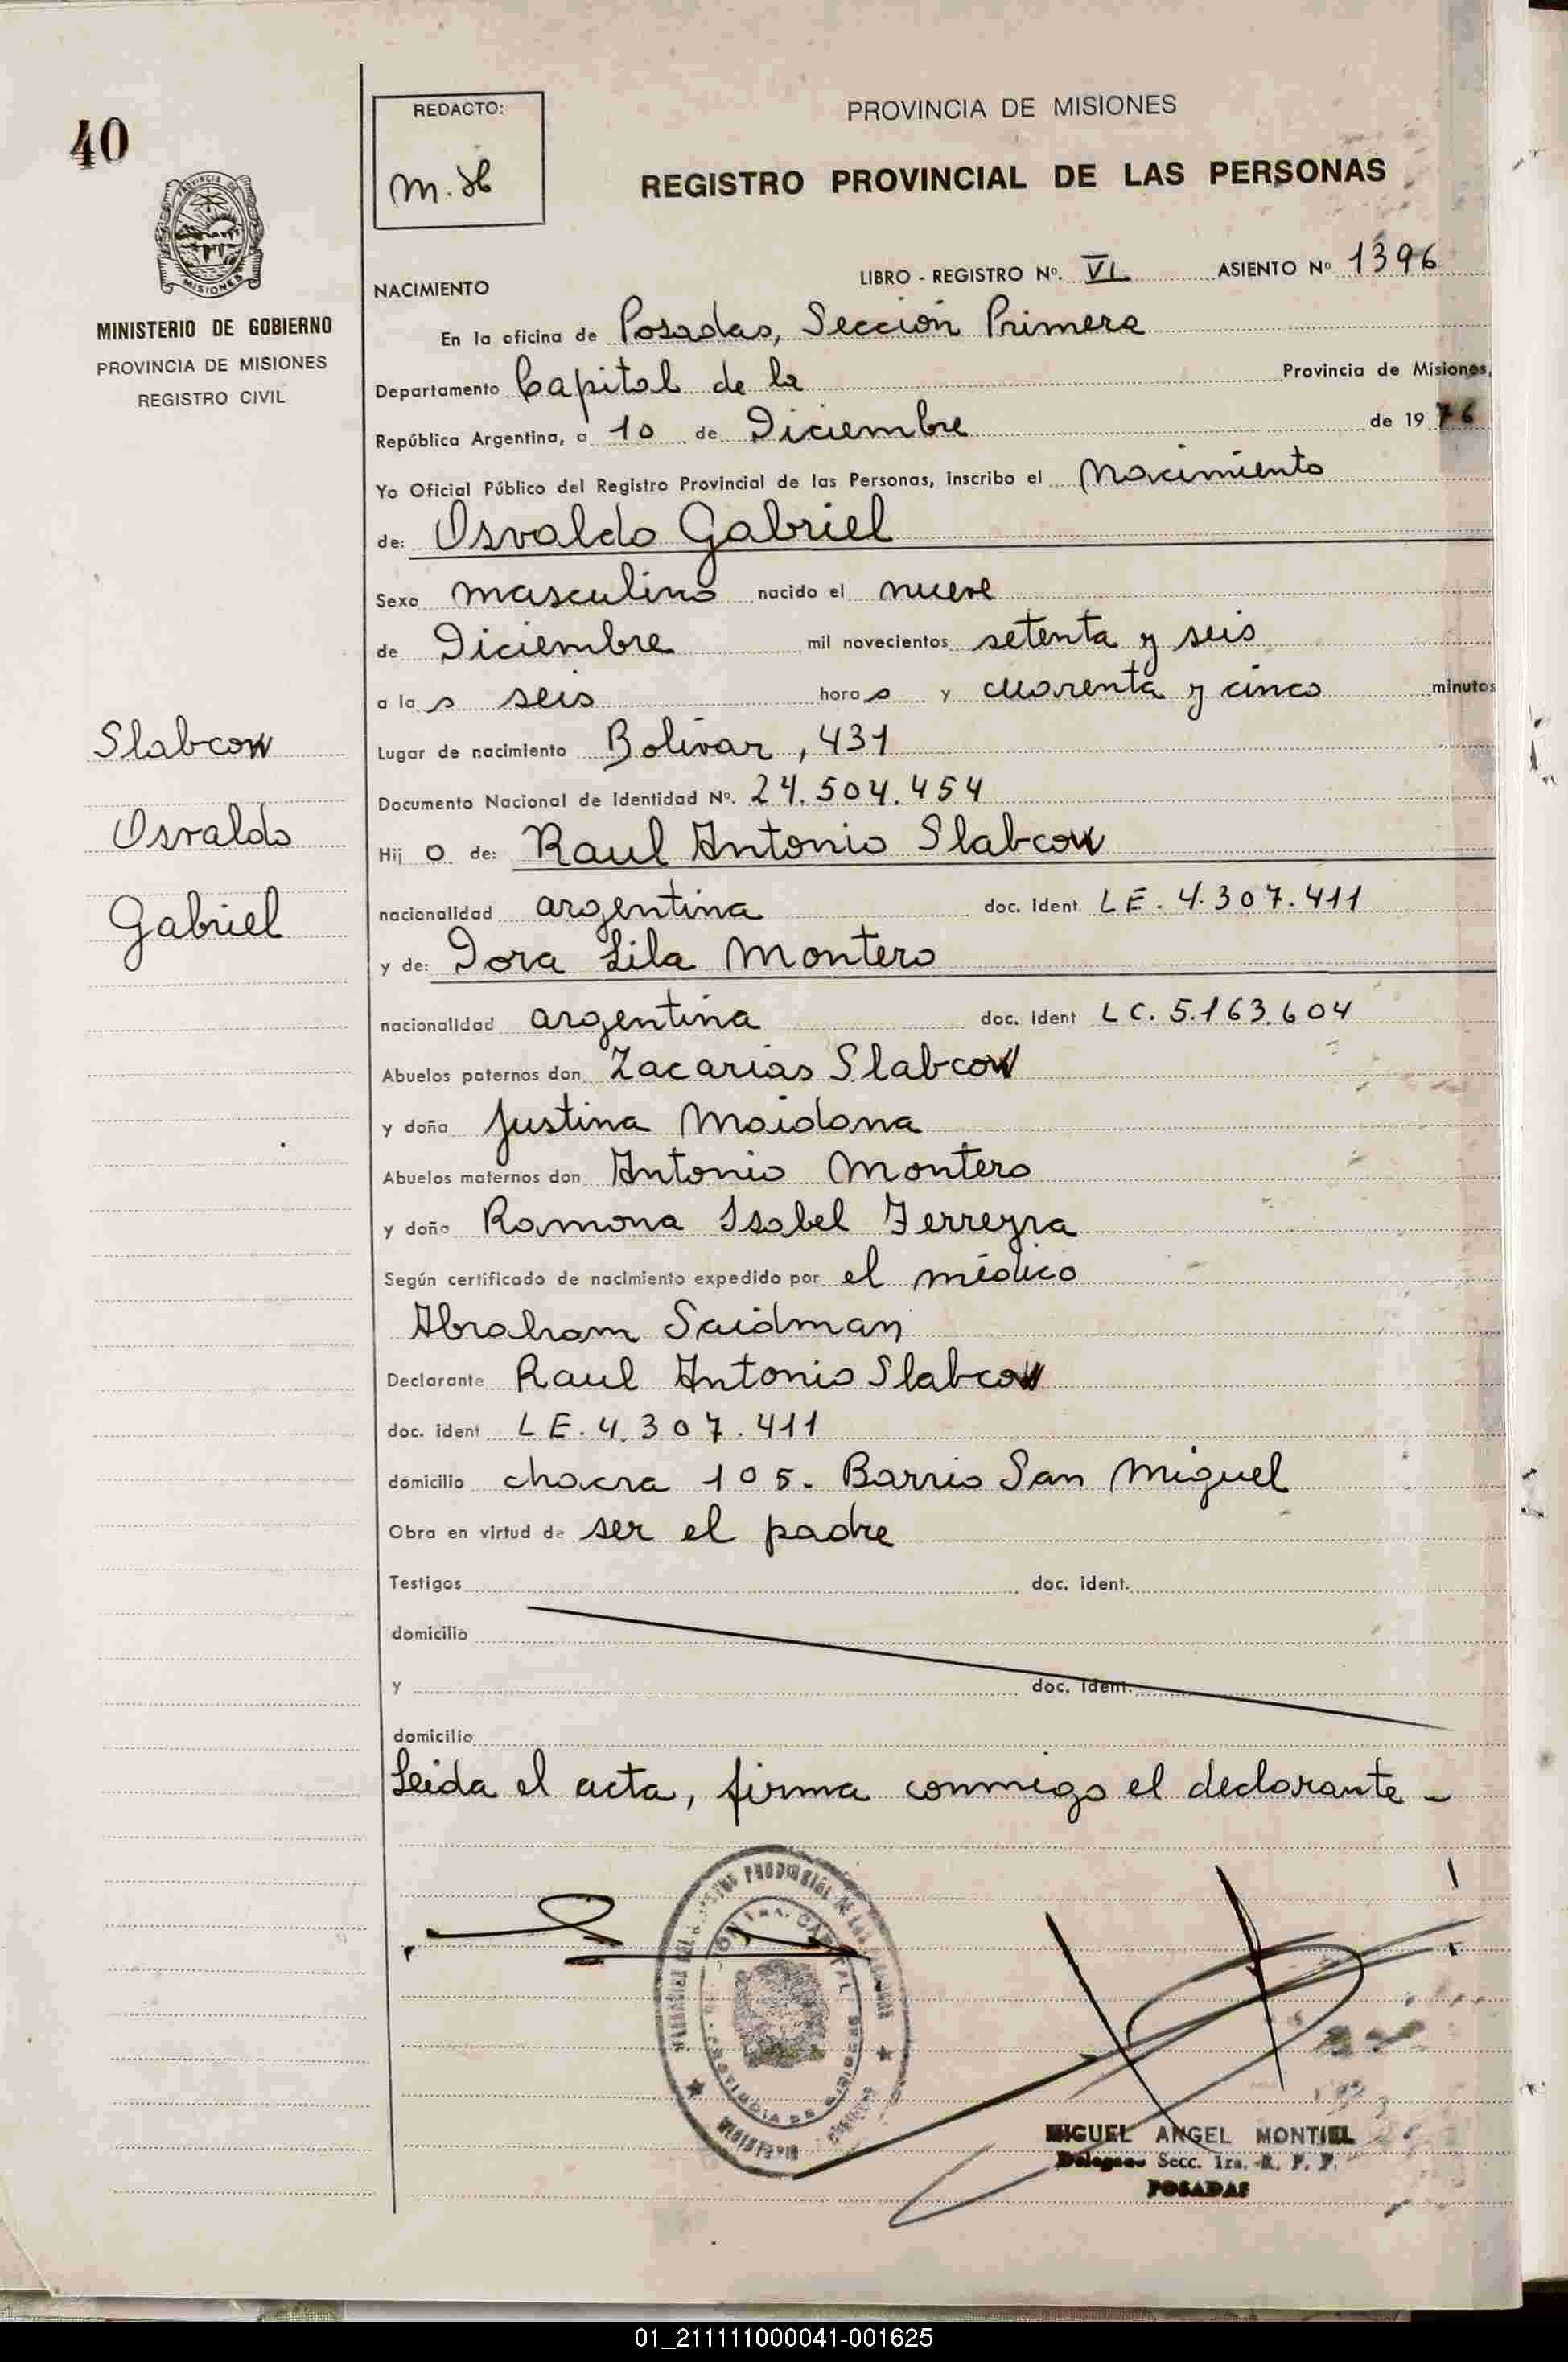 40
PROVINCIA DE MISIONES
MINISTERIO DE GOBIERNO
PROVINCIA DE MISIONES
REGISTRO CIVIL
Slabcow
Osvaldo
Gabriel
REDACTO:
PROVINCIA DE MISIONES
REGISTRO PROVINCIAL DE LAS PERSONAS
LIBRO - REGISTRO Nº. VI ASIENTO Nº 1396
NACIMIENTO
En la oficina de Posadas, Sección Primera
Departamento Capital de la Provincia de Misiones,
República Argentina, a 10 de Diciembre de 1976
Yo Oficial Público del Registro Provincial de las Personas, inscribo el Nacimiento
de: Osvaldo Gabriel
Sexo masculino nacido el nueve
de Diciembre mil novecientos setenta y seis
a la s seis hora s y cuarenta y cinco minutos
Lugar de nacimiento Bolívar, 431
Documento Nacional de Identidad Nº. 24.504.454
Hij o de: Raul Antonio Slabcow
nacionalidad argentina doc. Ident LE. 4.307.411
y de: Dora Lila Montero
nacionalidad argentina doc. Ident LC. 5.163.604
Abuelos paternos don Zacarias Slabcow
y doña Justina Maidana
Abuelos maternos don Antonio Montero
y doña Ramona Isabel Ferreyra
Según certificado de nacimiento expedido por el médico
Abraham Saidman
Declarante Raul Antonio Slabcow
doc. ident LE. 4.307.411
domicilio chacra 105. Barrio San Miguel
Obra en virtud de ser el padre
Testigos doc. ident.
domicilio
y doc. Ident.
domicilio
Leida el acta, firma conmigo el declarante -
MIGUEL ANGEL MONTIEL
Secc. 1ra. R. P. P.
POSADAS
01_211111000041-001625